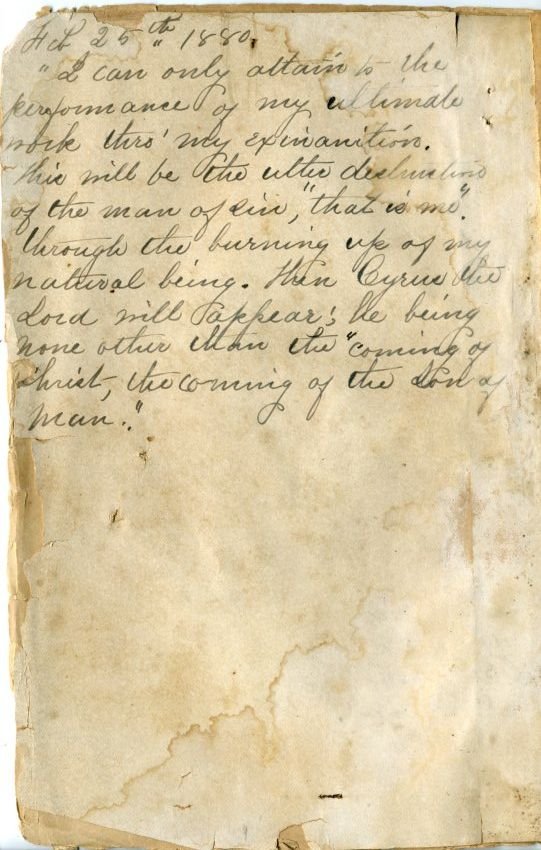 Feb 25th 1880.
"I can only attain to the
performance of my ultimate
work thro' my exinanition.
This will be the utter destruction
of the man of sin, "that is me".
through the burning up of my
natural being. Then Cyrus the
Lord will appear; he being
none other than the "coming of
Christ, the coming of the Son of
man."